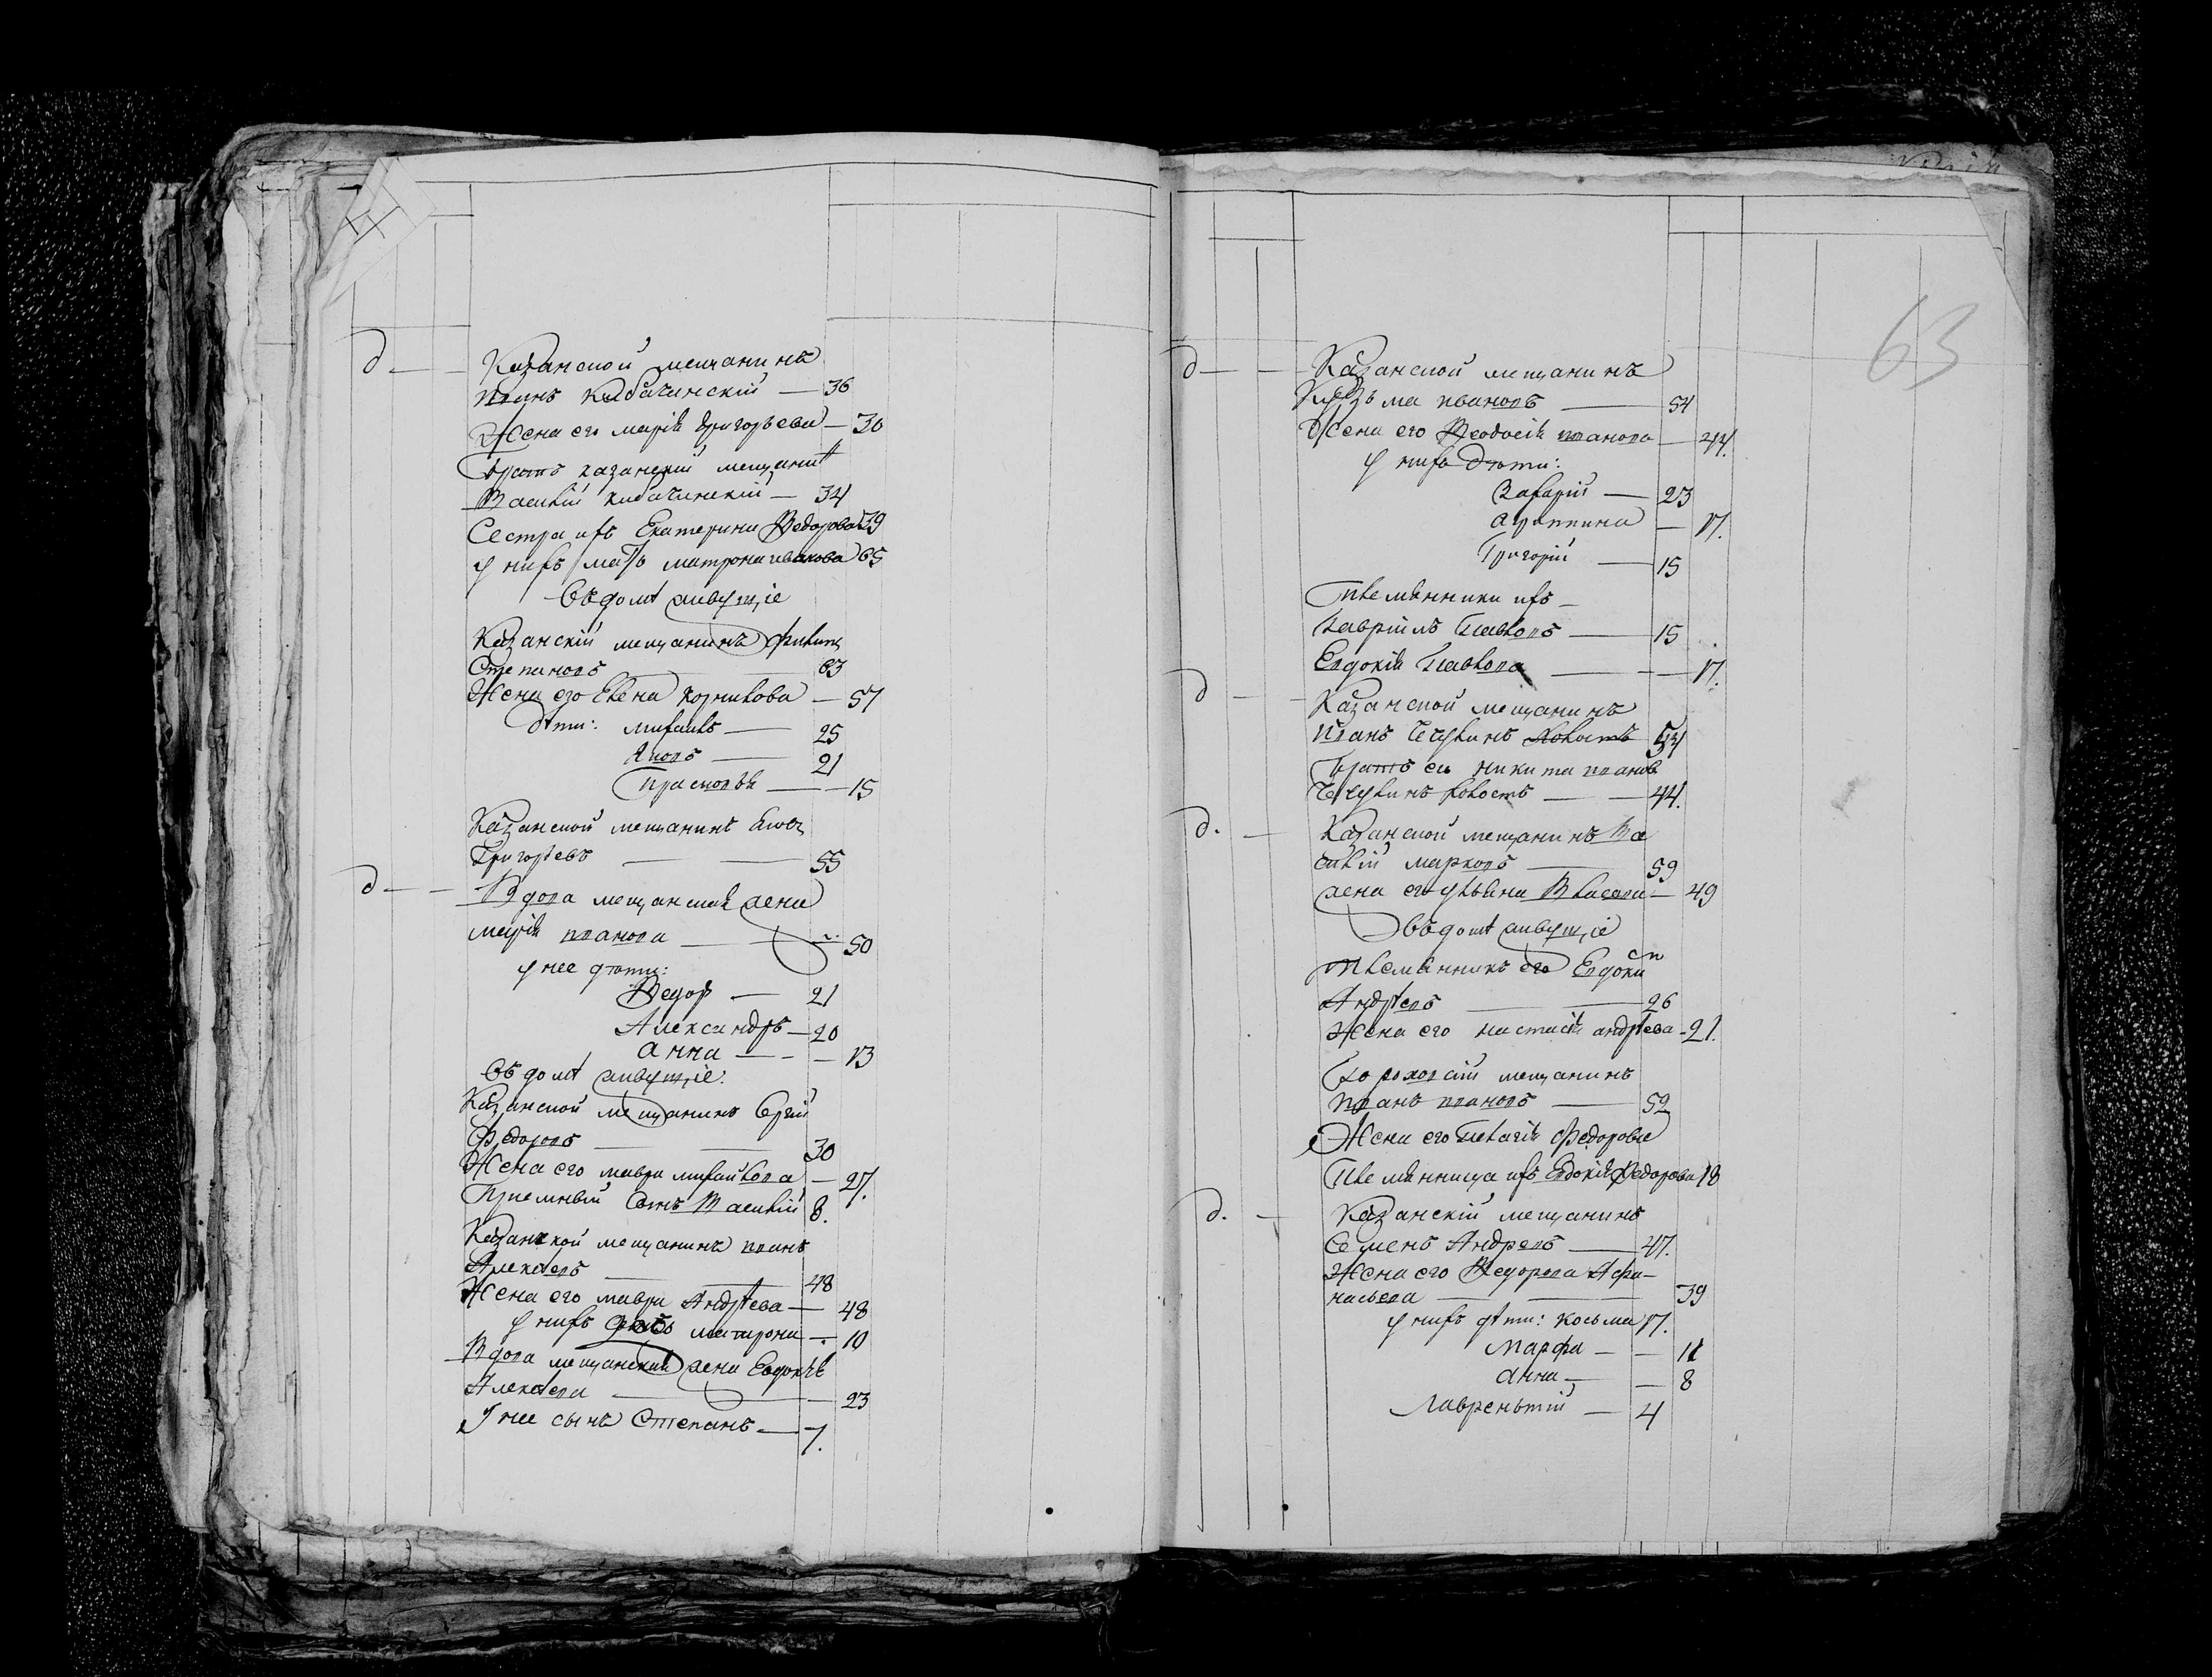 д — Казанской мещанинъ
Иванъ Кибачинскій — 36
Жена его Марія Григорьева — 30
Братъ казанскій мещанинъ
Василій Кибачинскій — 34
Сестра ихъ Екатерина Ѳедорова 39
у нихъ мать матрона иванова 65
Въ домѣ живущіе
Казанскій мещанинъ Филипъ
Степановъ 63
Жена его Елена Корнилова — 57
дѣти: михаилъ — 25
Яковъ — 21
Прасковья — 15
Казанской мещанинъ
Григорьевъ — 55
д — Вдова мещанская жена
марія иванова — 50
у нее дѣти:
Ѳедоръ — 21
Александръ — 20
анна — 13
Въ домѣ живущіе:
Казанской мещанинъ Сергій
Федоровъ — 30
Жена его мавра михайлова — 27.
Приемный сынъ Василій 8.
Казанской мещанинъ иванъ
Алексѣевъ — 48
Жена его мавра Андрѣева — 48
у нихъ дочь матрона — 10
Вдова мещанская жена Евдокія
Алексѣева — 23
У нее сынъ Степанъ — 7.
63
д — Казанской мещанинъ
Кузьма ивановъ — 54
Жена его Ѳеодосія иванова — 44.
у нихъ дѣти:
Захарій — 23
агрипина — 17.
Григорій — 15
Племянники ихъ —
Гавріилъ Павловъ — 15
Евдокія Павлова — 17.
д — Казанской мещанинъ
Иванъ Чечулинъ холостъ 54
Братъ его никита ивановъ
Чечулинъ холостъ — 44.
д. — Казанской мещанинъ Ва
силій марковъ — 59
жена его ульяна Власова — 49
Въ домѣ живущіе
Племянникъ его Евдоким
Андрѣевъ — 26
Жена его настасія андрѣева — 21.
мещанинъ
Иванъ ивановъ — 52
Жена его Пелагія Федорова
Племянница ихъ Евдокія Ѳедорова 18
д. — Казанскій мещанинъ
Семенъ Андреевъ — 47.
Жена его Ѳедорова Афа-
насьева — 39
у нихъ дѣти: косьма 17.
Марфа — 11
анна — 8
Лаврентій — 4